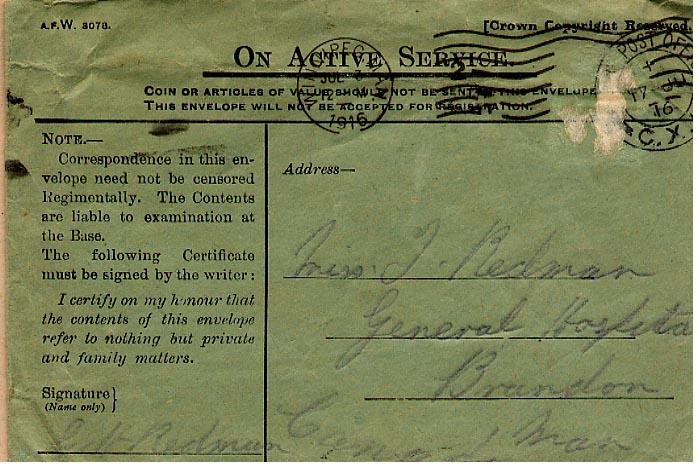 A.F.W. 3078.
[Crown Copyright Reserved.
ON ACTIVE SERVICE.
COIN OR ARTICLES OF VALUE SHOULD NOT BE SENT IN THIS ENVELOPE
THIS ENVELOPE WILL NOT BE ACCEPTED FOR REGISTRATION.
WINNIPEG MAN
JUL 3
12 M
1916
2
POST OFFICE
17
16
C.X.
NOTE.—
Correspondence in this en-
velope need not be censored
Regimentally. The Contents
are liable to examination at
the Base.
The following Certificate
must be signed by the writer:
I certify on my honour that
the contents of this envelope
refer to nothing but private
and family matters.
Signature}
(Name only)
Redman
Address—
Miss. J. Redman
General Hospita
Brandon
Man
Canad